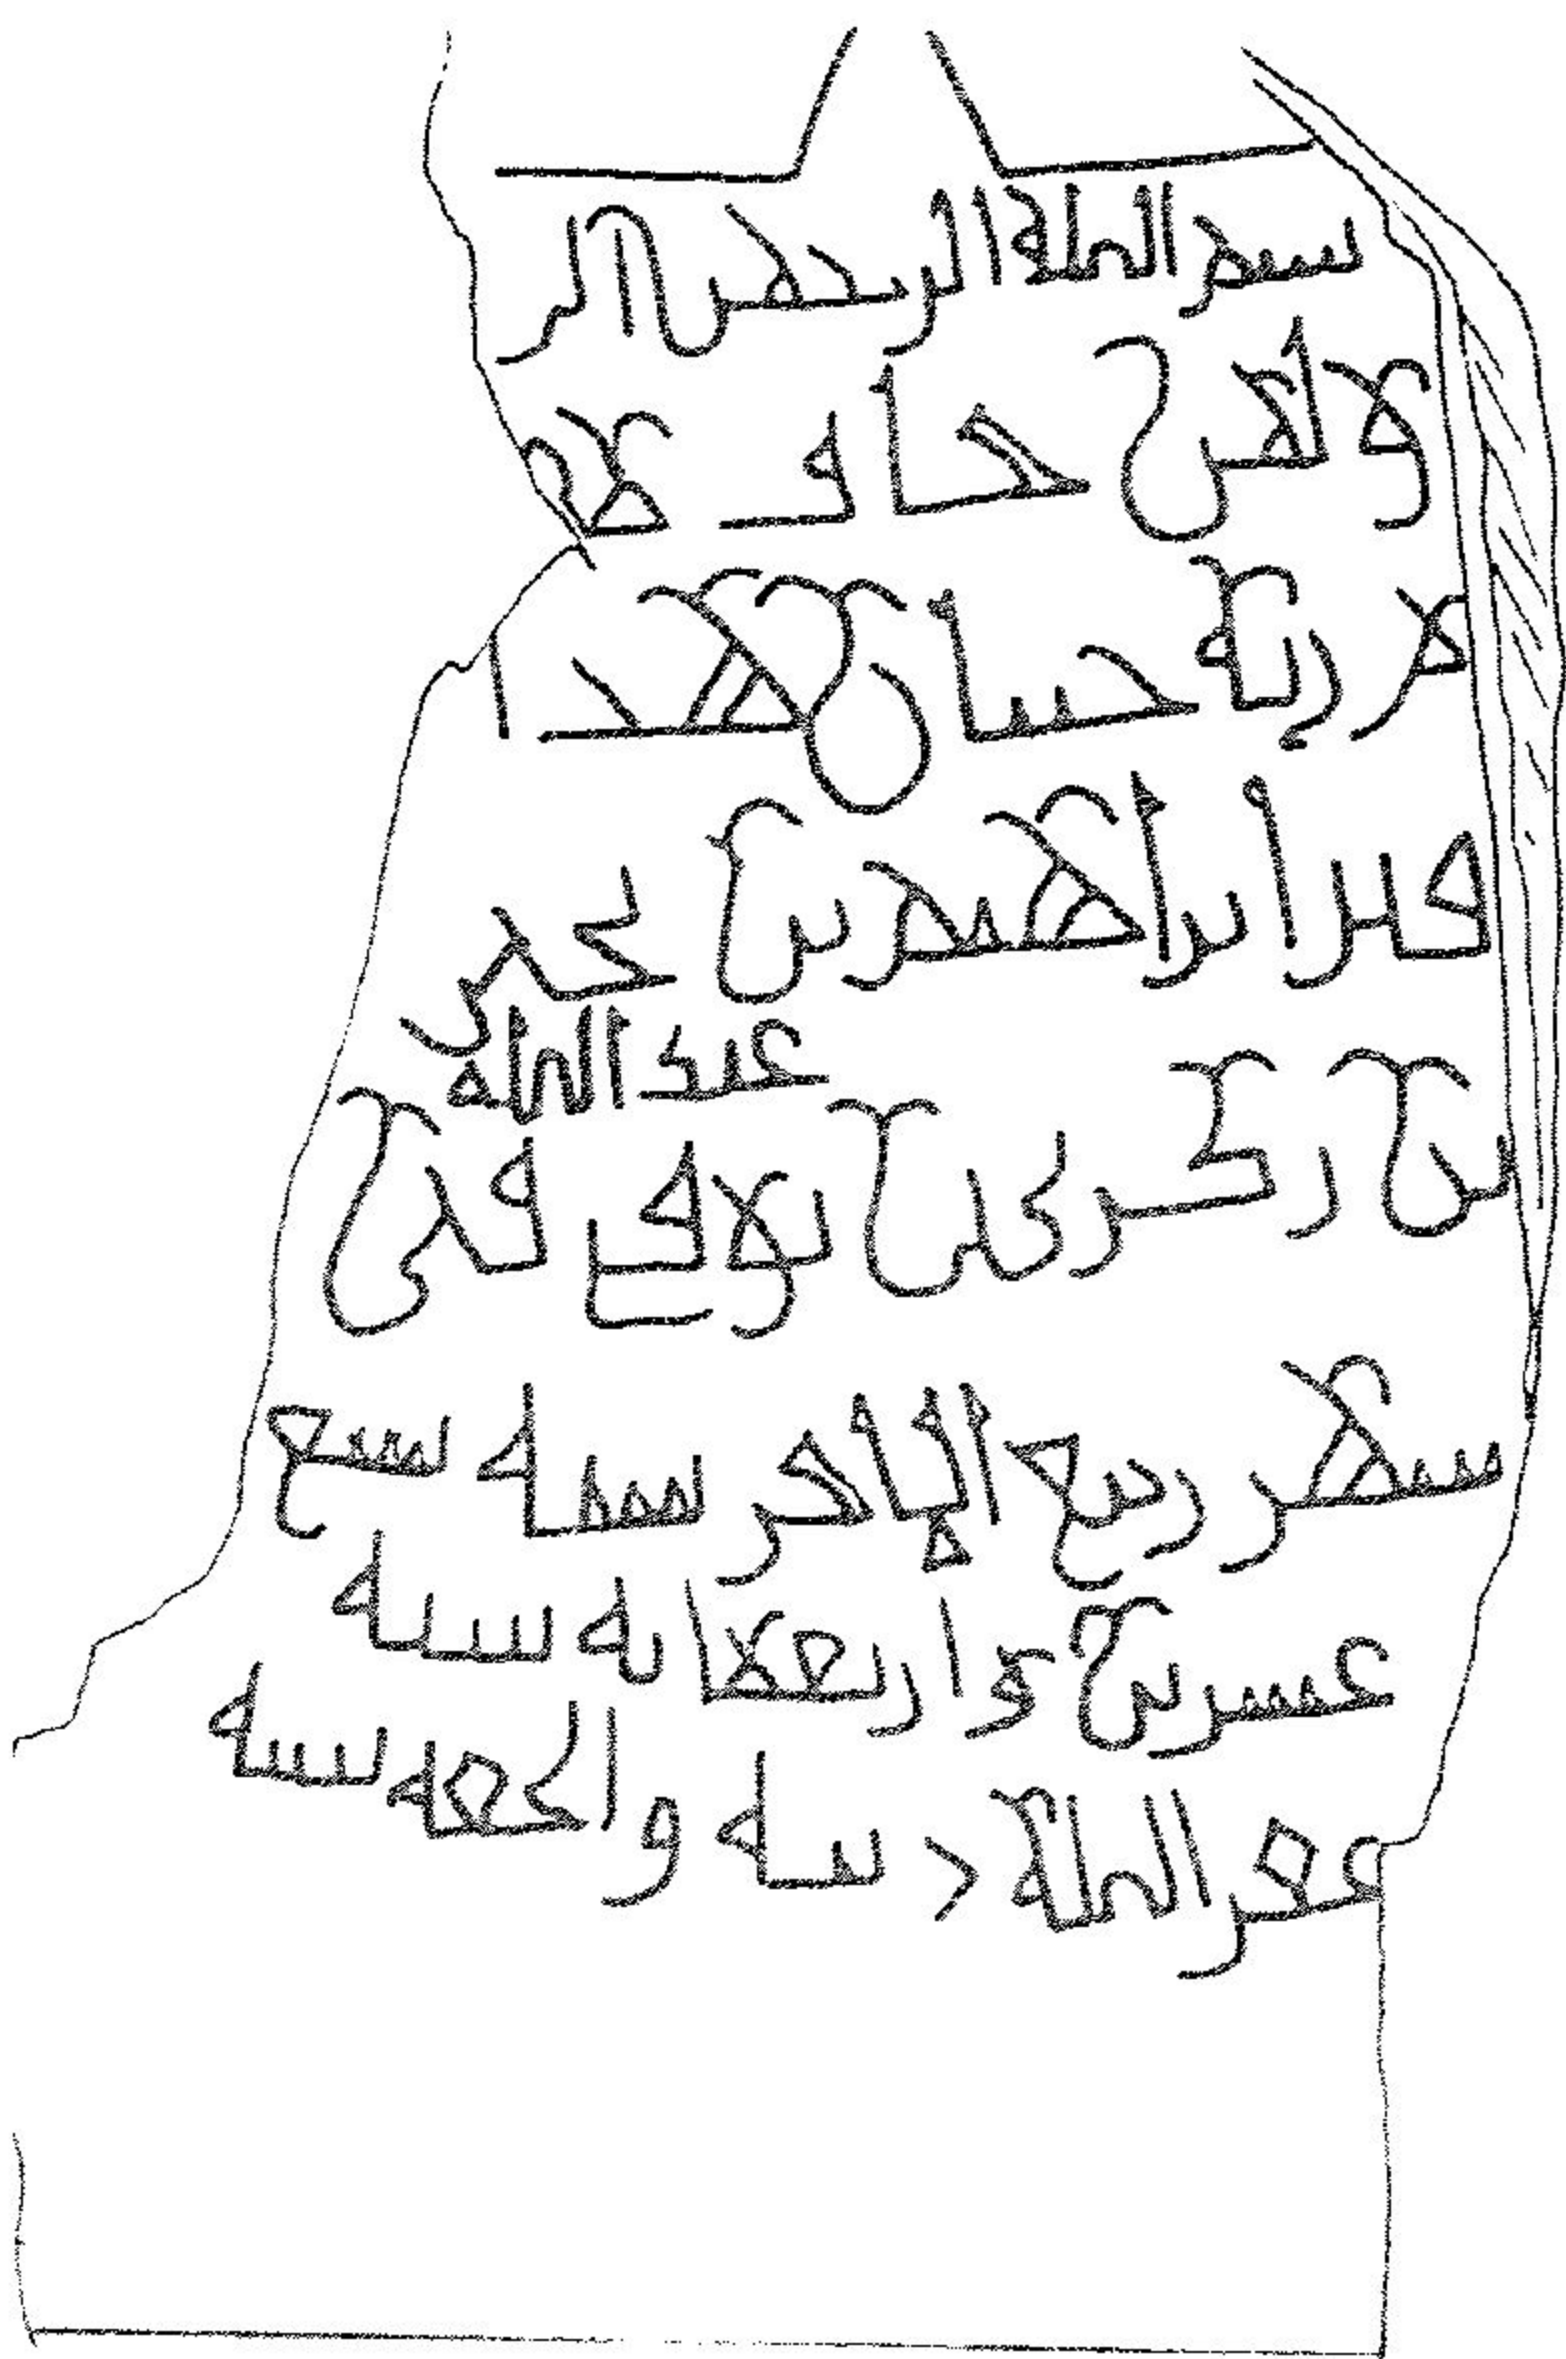 بسم الله الرحمن الر
ولمن خاف مقا
م ربه جنتان هذا
قبر ابراهيم بن
عبد الله
بن توفي في
شهر ربيع الاخر سنة سبع
عشرين و اربعماية سنة
غفر الله ذنبه والحقه بنبيه